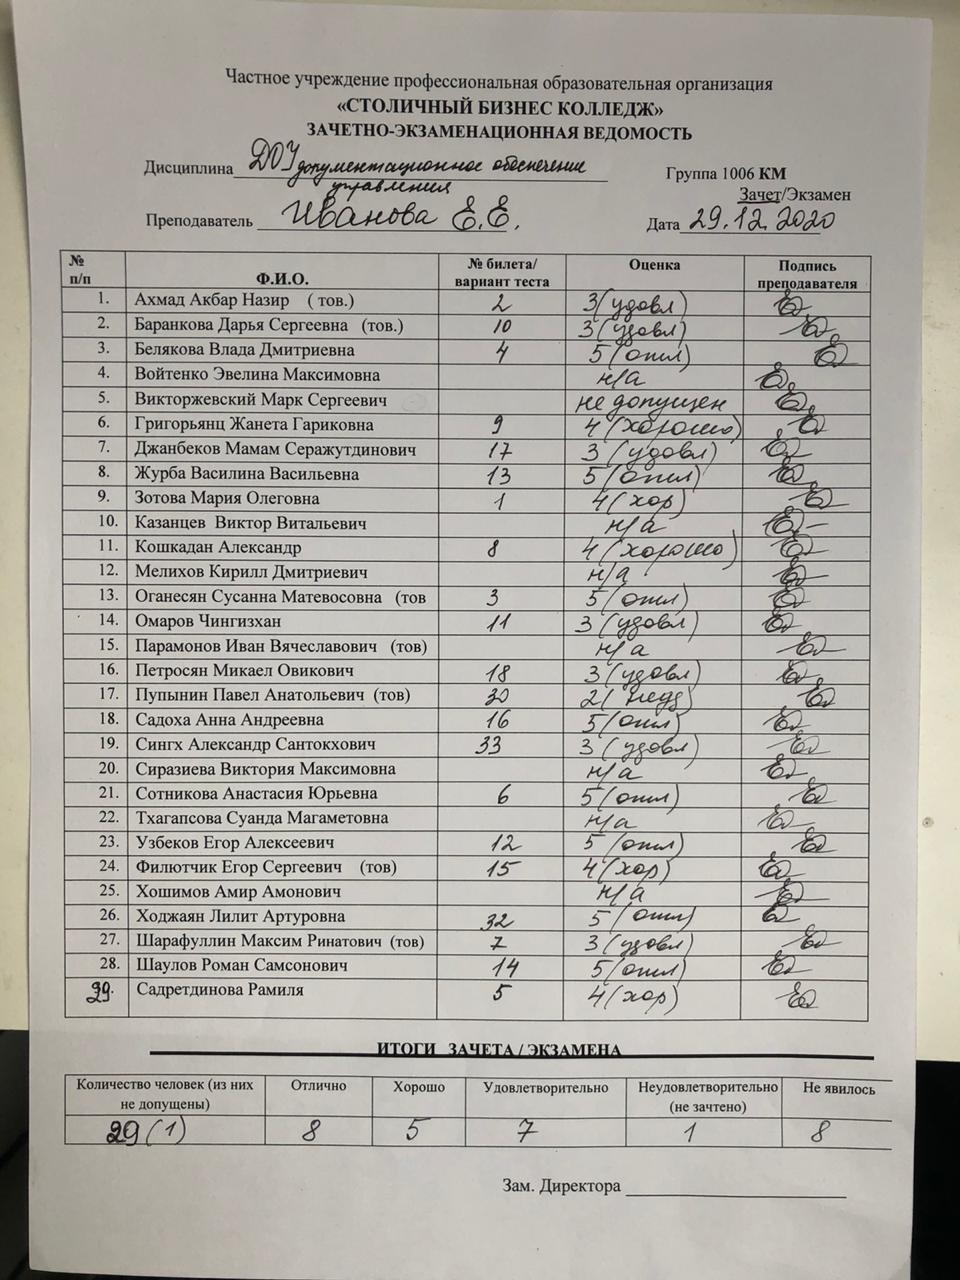 Частное учреждение профессиональная образовательная организация
«СТОЛИЧНЫЙ БИЗНЕС КОЛЛЕДЖ»
ЗАЧЕТНО-ЭКЗАМЕНАЦИОННАЯ ВЕДОМОСТЬ
Дисциплина ДОУ документационное обеспечении Группа 1006 КМ
управления Зачет/Экзамен
Преподаватель Иванова Е.Е. Дата 29.12.2020
№ п/п Ф.И.О. № билета/ вариант теста Оценка Подпись преподавателя
1. Ахмад Акбар Назир ( тов.) 2 3 (удовл)
2. Баранкова Дарья Сергеевна (тов.) 10 3 (удовл)
3. Белякова Влада Дмитриевна 4 5 (отл)
4. Войтенко Эвелина Максимовна н/а
5. Викторжевский Марк Сергеевич не допущен
6. Григорьянц Жанета Гариковна 9 4 (хорошо)
7. Джанбеков Мамам Серажутдинович 17 3 (удовл)
8. Журба Василина Васильевна 13 5 (отл)
9. Зотова Мария Олеговна 1 4 (хор)
10. Казанцев Виктор Витальевич н/а
11. Кошкадан Александр 8 4 (хорошо)
12. Мелихов Кирилл Дмитриевич н/а
13. Оганесян Сусанна Матевосовна (тов 3 5 (отл)
14. Омаров Чингизхан 11 3 (удовл)
15. Парамонов Иван Вячеславович (тов) н/а
16. Петросян Микаел Овикович 18 3 (удовл)
17. Пупынин Павел Анатольевич (тов) 30 2 (неуд)
18. Садоха Анна Андреевна 16 5 (отл)
19. Сингх Александр Сантокхович 33 3 (удовл)
20. Сиразиева Виктория Максимовна н/а
21. Сотникова Анастасия Юрьевна 6 5 (отл)
22. Тхагапсова Суанда Магаметовна н/а
23. Узбеков Егор Алексеевич 12 5 (отл)
24. Филютчик Егор Сергеевич (тов) 15 4 (хор)
25. Хошимов Амир Амонович н/а
26. Ходжаян Лилит Артуровна 32 5 (отл)
27. Шарафуллин Максим Ринатович (тов) 7 3 (удовл)
28. Шаулов Роман Самсонович 14 5 (отл)
29. Садретдинова Рамиля 5 4 (хор)
ИТОГИ ЗАЧЕТА / ЭКЗАМЕНА
Количество человек (из них не допущены) Отлично Хорошо Удовлетворительно Неудовлетворительно (не зачтено) Не явилось
29 (1) 8 5 7 1 8
Зам. Директора